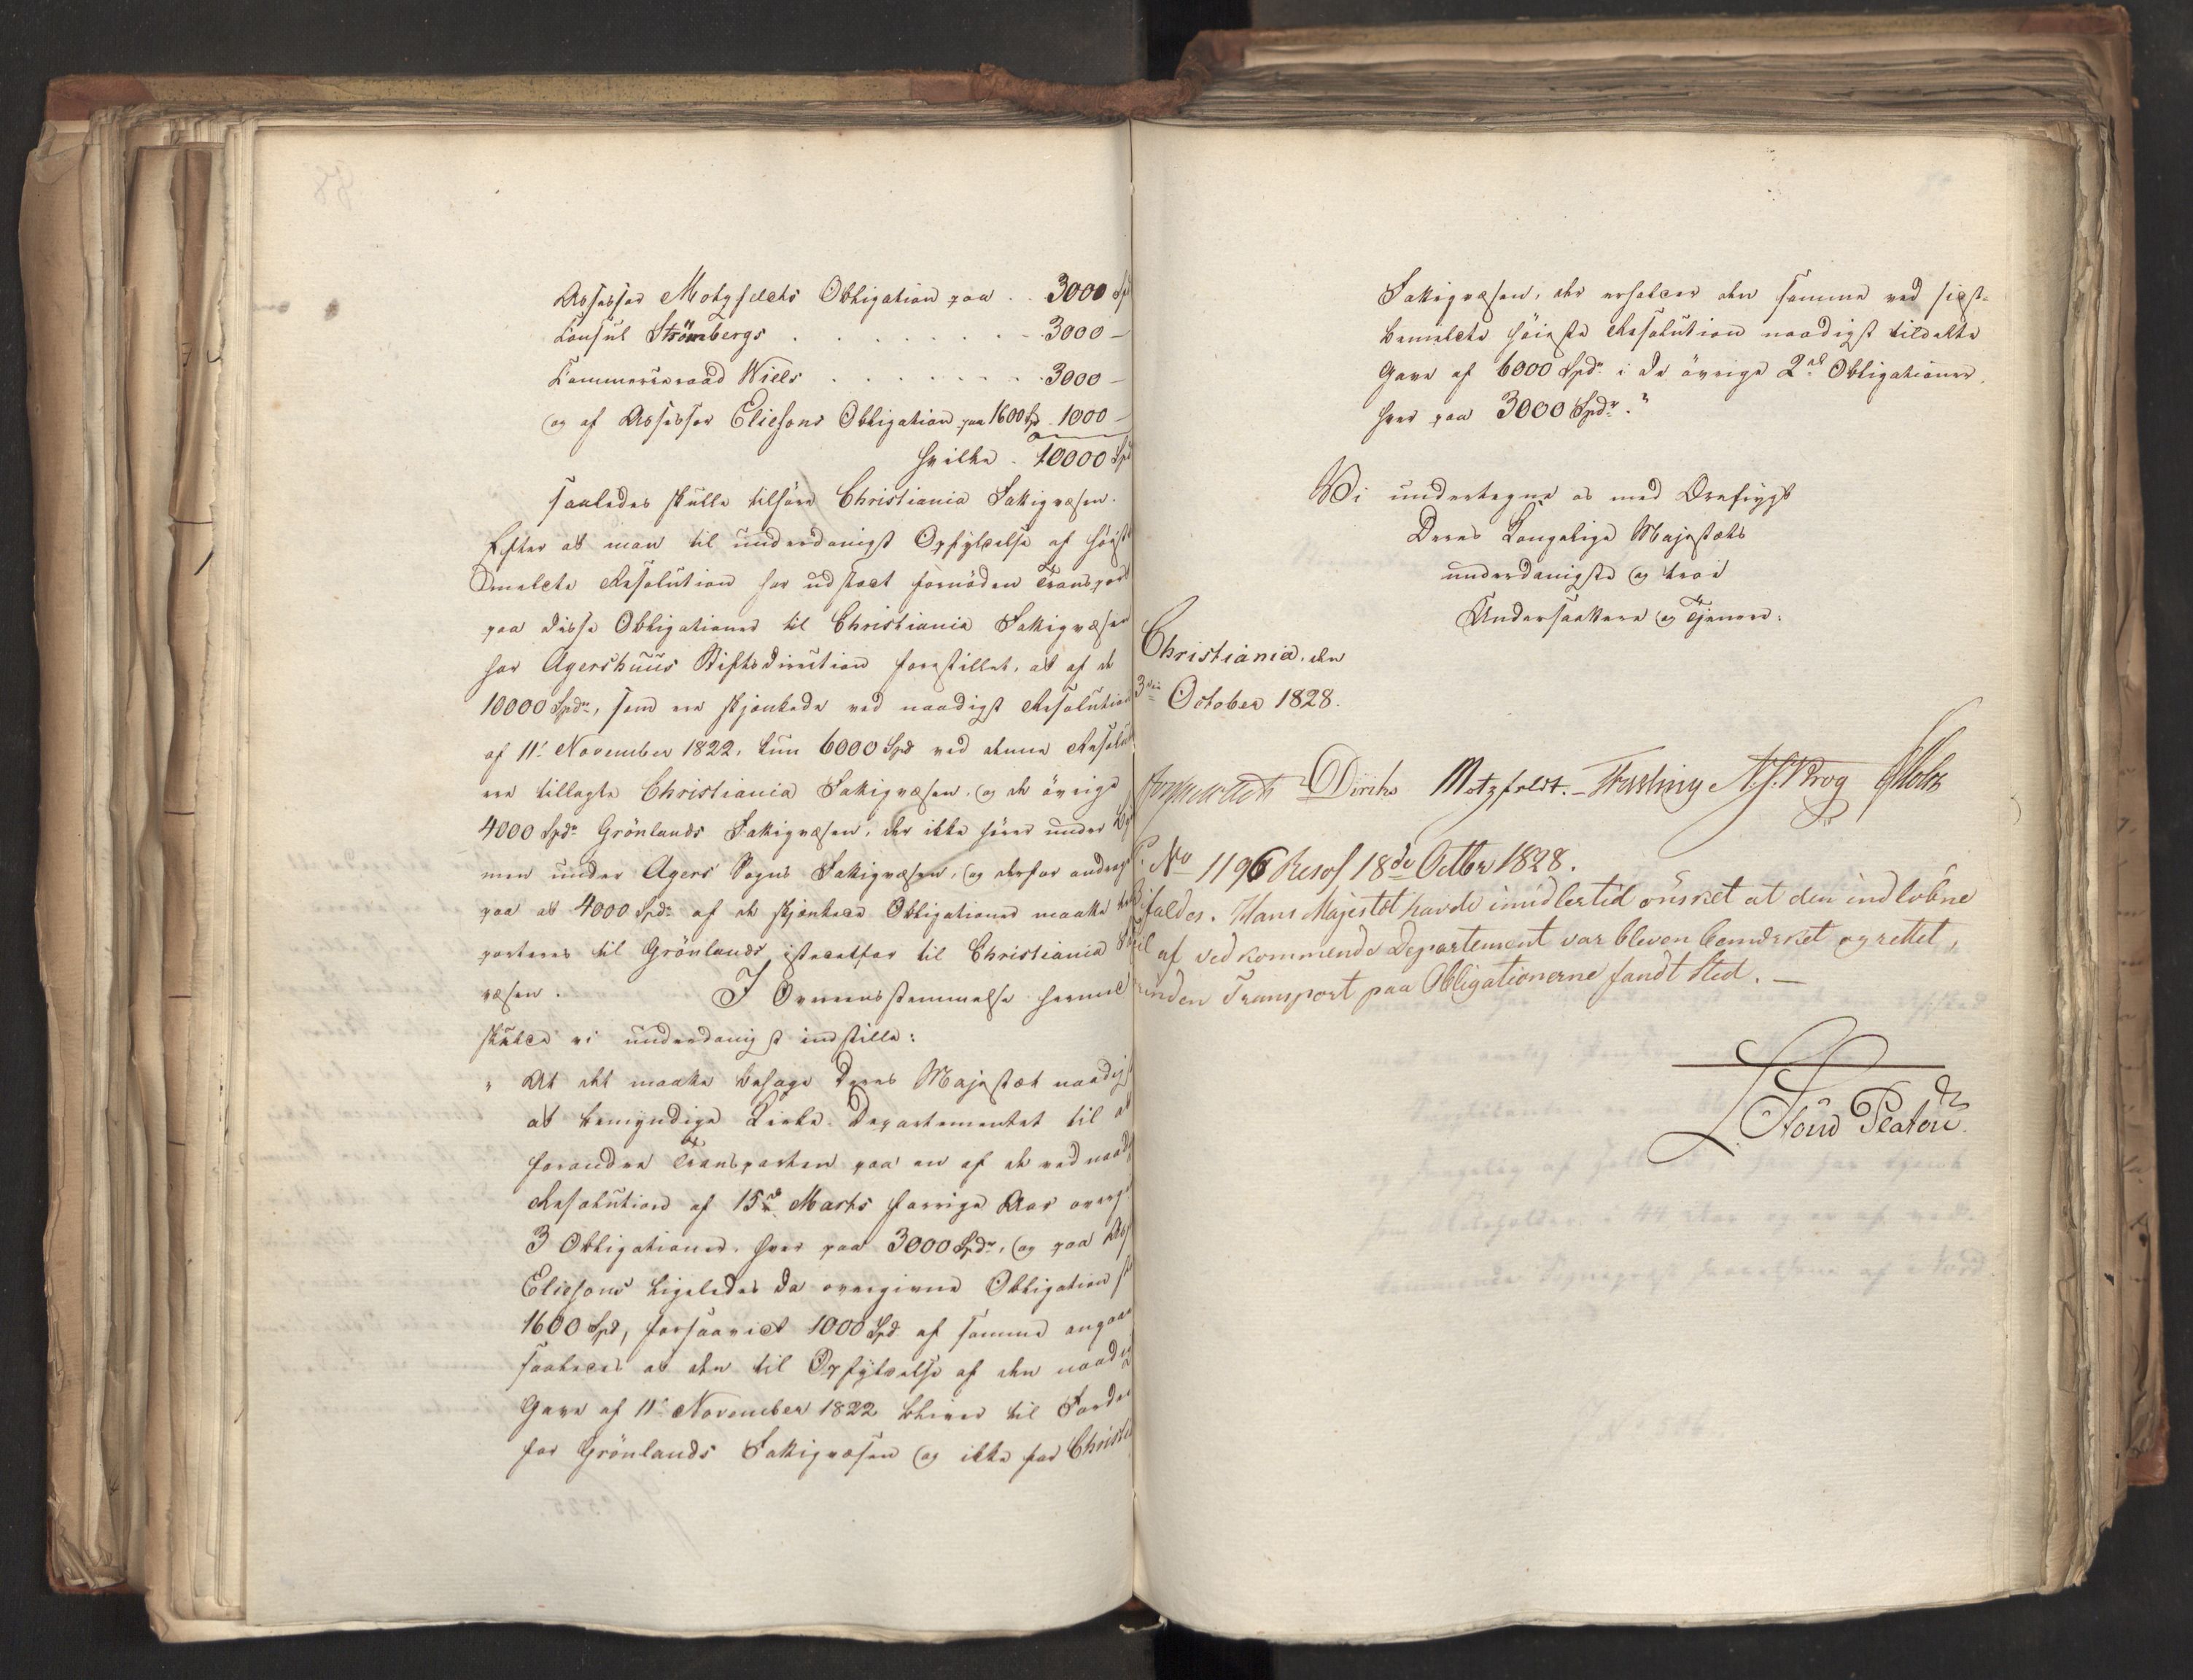 Assessor Motzfeldts Obligation paa . . 3000 Spd
Konsul Strömbergs . . . . . . . . 3000 —
Kommerseraad Wiels . . . . . . . . 3000 —
og af Assessor Eliesons Obligation paa 1600 Spd 1000 —
hvilke . 10000 Spd
saaledes skulle tilhøre Christiania Fattigvæsen.
Efter at man til underdanigst Opfyldelse af høist
bemeldte Resolution har udstædt fornöden Transport
paa disse Obligationer til Christiania Fattigvæsen
har Agershuus Stiftsdirection forestillet, at af de
10000 Spdr, som ere skjænkede ved naadigst Resolution
af 11te November 1822, kun 6000 Spd ved denne Resolut
ere tillagte Christiania Fattigvæsen, og de övrige
4000 Spdr Grönlands Fattigvæsen, der ikke hører under
men under Agers Sogns Fattigvæsen, og derfor andraget
paa at 4000 Spdr af de skjænkede Obligationer maatte
porteres til Grönlands istedetfor til Christiania
væsen. I Overeensstemmelse hermed
skulde vi underdanigst indstille:
" At det maatte behage Deres Majestæt naadigst
at bemyndige Kirke-Departementet til at
forandre Transporten paa en af de ved naad
Resolution af 15de Marts forrige Aar overg
3 Obligationer, hver paa 3000 Spdr, og paa Ass
Eliesons ligeledes da overgivne Obligation
1600 Spd, forsaavidt 1000 Spd af samme angaar
saaledes at den til Opfyldelse af den naadig
Gave af 11te November 1822 bliver til Fordeel
for Grönlands Fattigvæsen og ikke for Christi
Fattigvæsen, der erholder den samme ved sidst-
bemeldte høieste Resolution naadigst tildelte
Gave af 6000 Spdr i de övrige 2de Obligationer,
hver paa 3000 Spdr."
Vi undertegne os med Ærefrygt
Deres Kongelige Majestæts
underdanigste og troe
Undersaattere og Tjenere:
Christiania, den
3die October 1828.
Diriks Motzfeldt. Fasting Krog Holst
No 1196 Resol 18de Octbr 1828.
Bifaldes. Hans Majestæt havde imidlertid önsket at den indlöbne
Feil af vedkommende Departement var bleven bemærket og rettet,
inden Transport paa Obligationerne fandt Sted. —